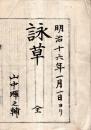 明治十六年一月一日ヨリ
詠草 全
山中輝之輔